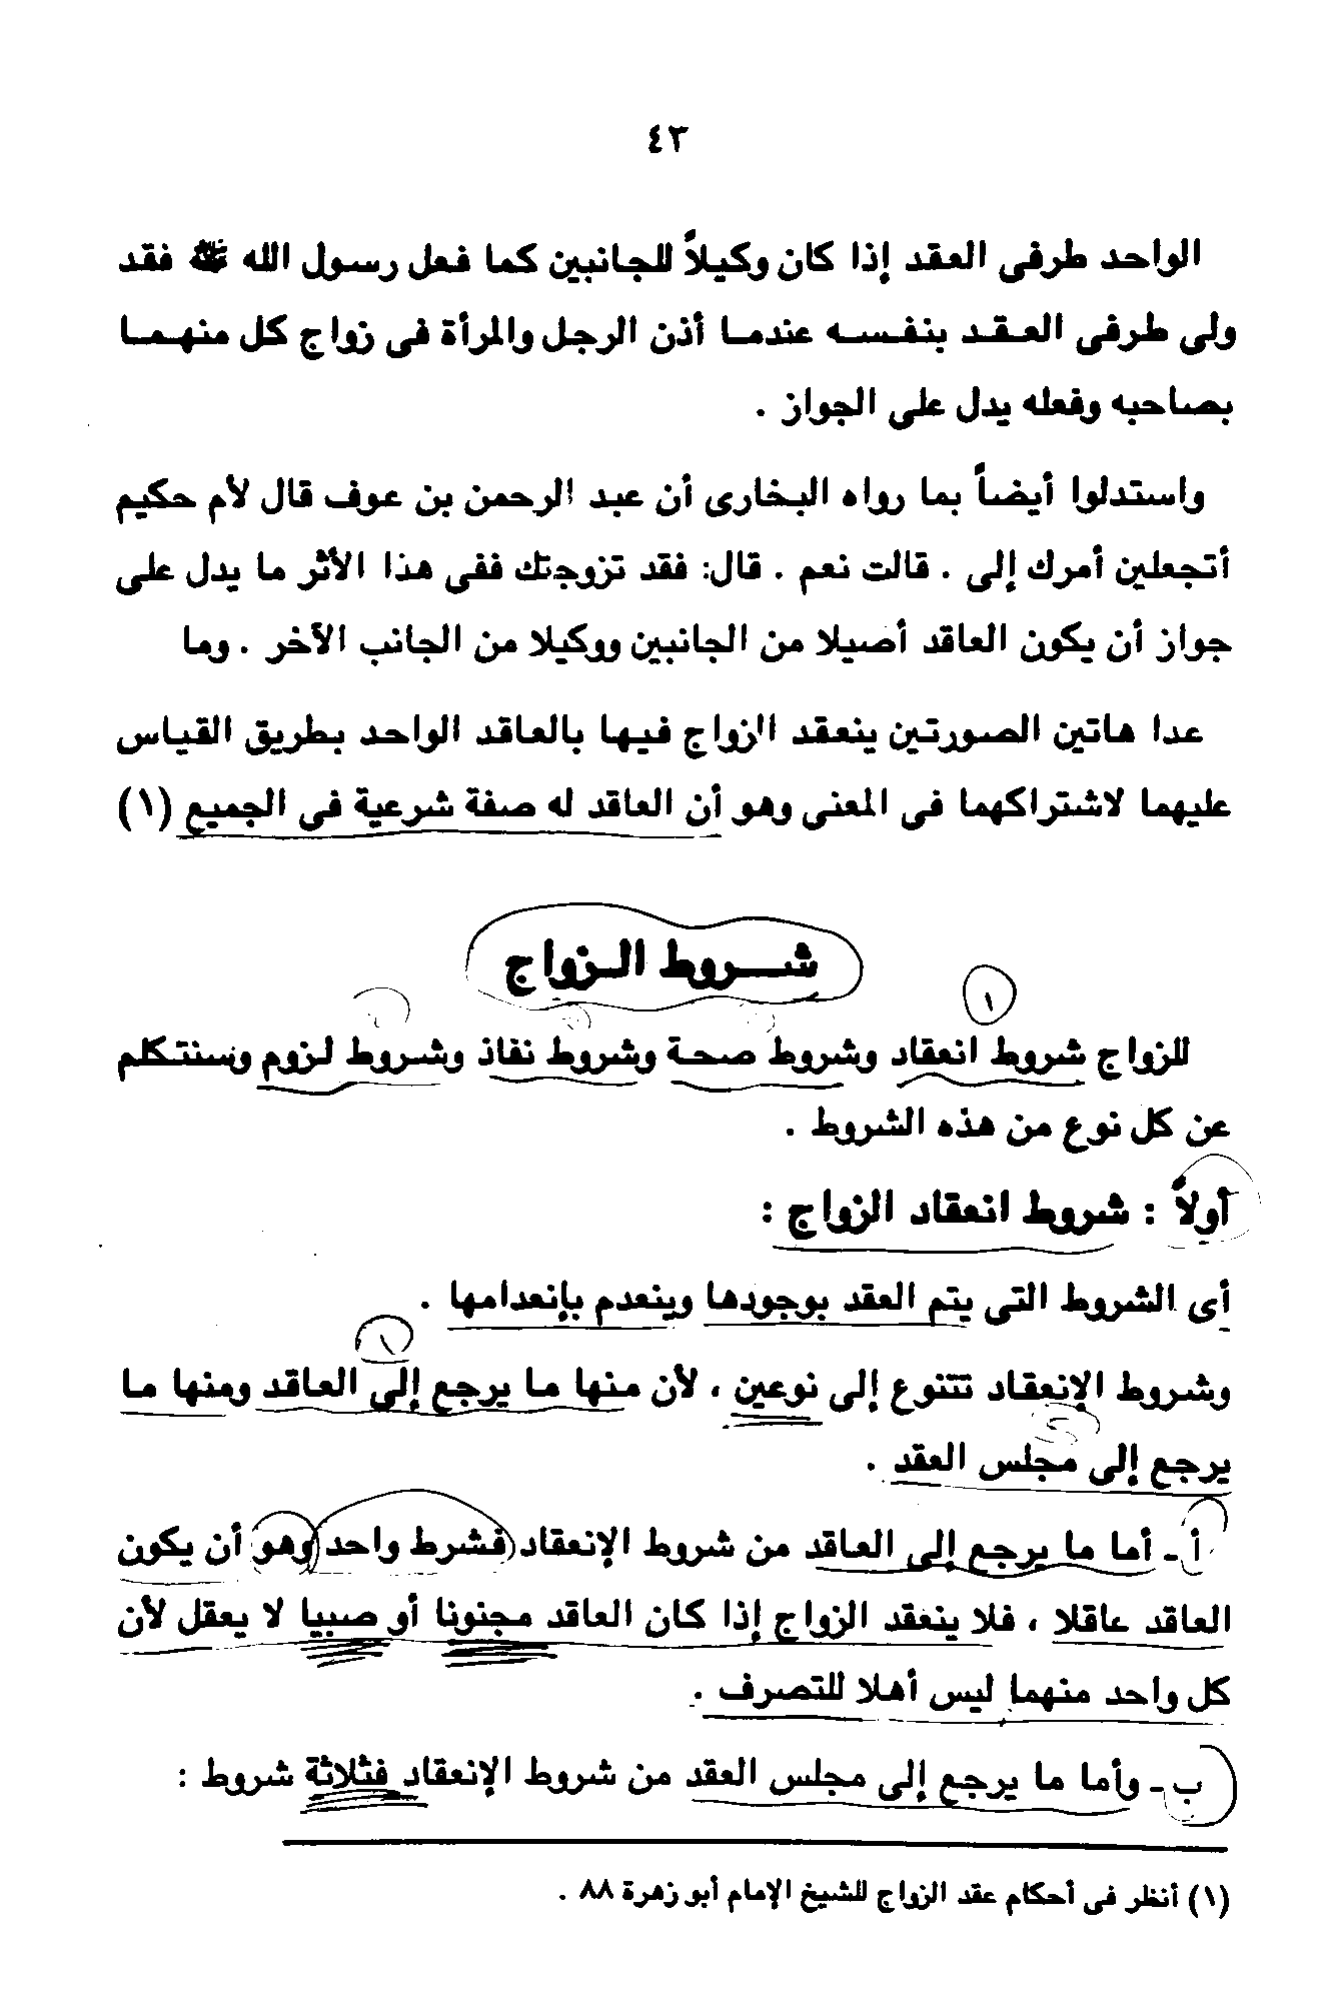 ٤٣
الواحد طرفى العقد إذا كان وكيلاً للجانبين كما فعل رسول الله ﷺ فقد
ولى طرفى العقد بنفسه عندما أذن الرجل والمرأة فى زواج كل منهما
بصاحبه وفعله يدل على الجواز .
واستدلوا أيضاً بما رواه البخارى أن عبد الرحمن بن عوف قال لأم حكيم
أتجعلين أمرك إلى . قالت نعم . قال: فقد تزوجتك ففى هذا الأثر ما يدل على
جواز أن يكون العاقد أصيلا من الجانبين ووكيلا من الجانب الآخر . وما
عدا هاتين الصورتين ينعقد الزواج فيها بالعاقد الواحد بطريق القياس
عليهما لاشتراكهما فى المعنى وهو أن العاقد له صفة شرعية فى الجميع (١)
شروط الزواج
١
للزواج شروط انعقاد وشروط صحة وشروط نفاذ وشروط لزوم وسنتكلم
عن كل نوع من هذه الشروط .
أولاً : شروط انعقاد الزواج :
أى الشروط التى يتم العقد بوجودها وينعدم بإنعدامها .
١
وشروط الإنعقاد تتنوع إلى نوعين ، لأن منها ما يرجع إلى العاقد ومنها ما
يرجع إلى مجلس العقد .
أ ـ أما ما يرجع إلى العاقد من شروط الإنعقاد فشرط واحد وهو أن يكون
العاقد عاقلا ، فلا ينعقد الزواج إذا كان العاقد مجنونا أو صبيا لا يعقل لأن
كل واحد منهما ليس أهلا للتصرف .
ب ـ وأما ما يرجع إلى مجلس العقد من شروط الإنعقاد فثلاثة شروط :
(١) أنظر فى أحكام عقد الزواج للشيخ الإمام أبو زهرة ٨٨ .